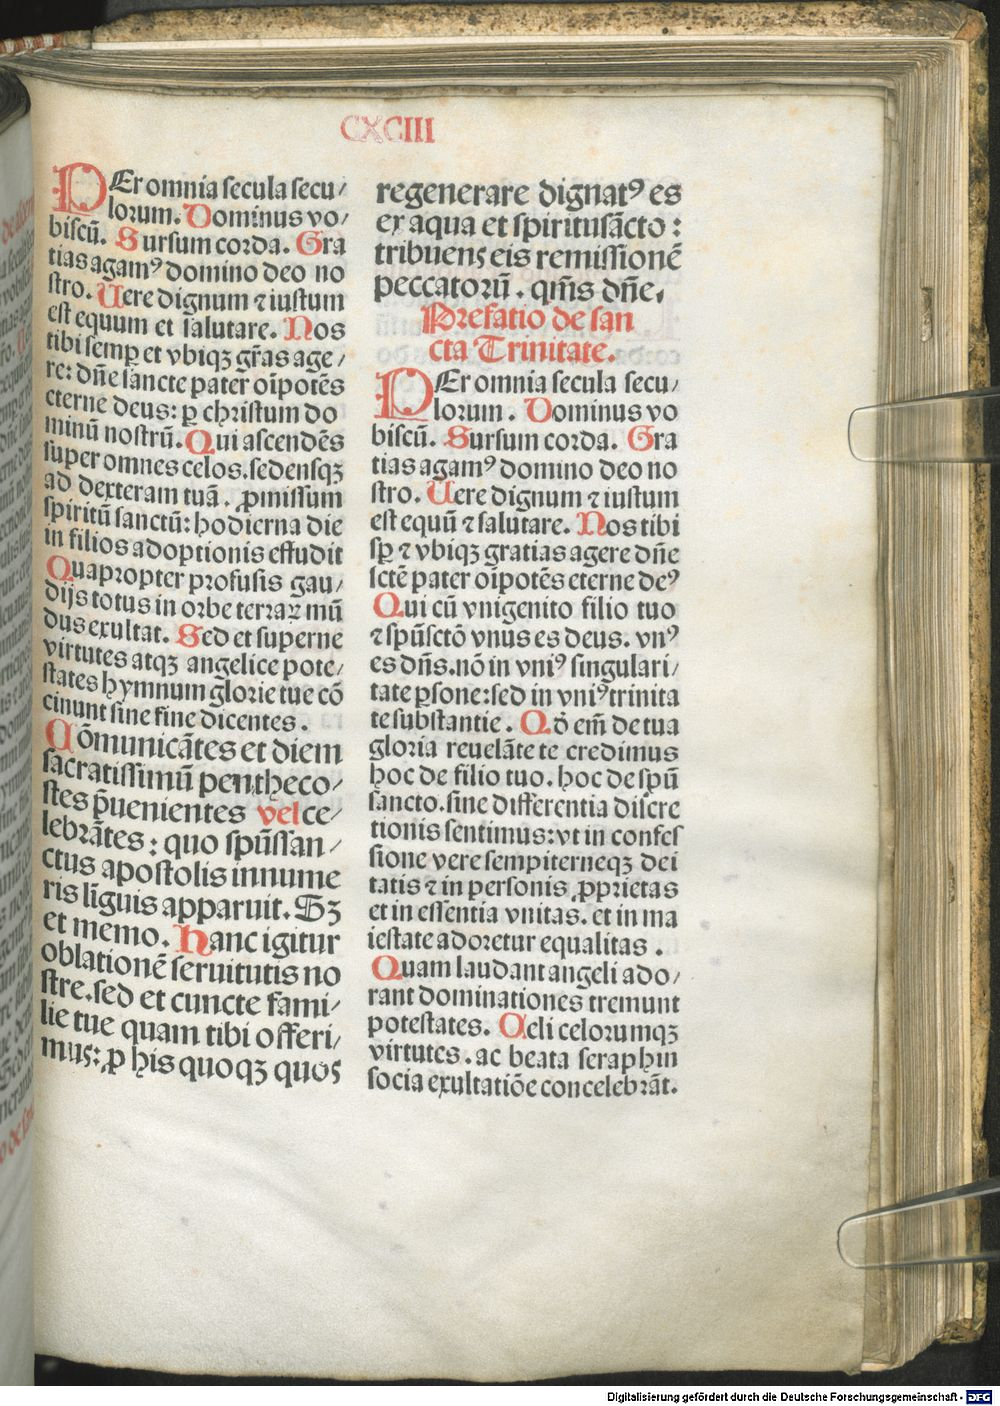 CXCIII
PEr omnia secula secu/
lorum. Dominus vo/
biscū. Sursum corda. Gra
tias agamꝰ domino deo no
stro. Uere dignum ⁊ iustum
est equum et salutare. Nos
tibi semꝑ et vbiqꝫ gr̄as age/
re: dn̄e sancte pater oīpotēs
eterne deus: ꝑ christum do
minū nostrū. Qui ascendēs
super omnes celos. sedensqꝫ
ad dexteram tuā. ꝓmissum
spiritū sanctū: hodierna die
in filios adoptionis effudit
Quapropter profusis gau/
dijs totus in orbe terraꝝ mū
dus exultat. Sed et superne
virtutes atqꝫ angelice pote/
states hymnum glorie tue cō
cinunt sine fine dicentes.
Cōmunicātes et diem
sacratissimū pentheco/
stes p̄uenientes vel ce/
lebrātes: quo spūssan/
ctus apostolis innume
ris līguis apparuit. Sꝫ
et memo. Hanc igitur
oblationē seruitutis no
stre. sed et cuncte fami/
lie tue quam tibi offeri/
mus: ꝓ his quoqꝫ quos
regenerare dignatꝰ es
ex aqua et spiritusācto:
tribuens eis remissionē
peccatorū. qm̄s dn̄e,
Prefatio de san
cta Trinitate.
PEr omnia secula secu/
lorum. Dominus vo
biscū. Sursum corda. Gra
tias agamꝰ domino deo no
stro. Uere dignum ⁊ iustum
est equū ⁊ salutare. Nos tibi
sꝑ ⁊ vbiqꝫ gratias agere dn̄e
sctē pater oīpotēs eterne deꝰ
Qui cū vnigenito filio tuo
⁊ spūsctō vnus es deus. vnꝰ
es dn̄s. nō in vniꝰ singulari/
tate ꝑsone: sed in vniꝰ trinita
te substantie. Qō em̄ de tua
gloria reuelāte te credimus
hoc de filio tuo. hoc de spū
sancto. sine differentia discre
tionis sentimus: vt in confes
sione vere sempiterneqꝫ dei
tatis ⁊ in personis ꝓprietas
et in essentia vnitas. et in ma
iestate adoretur equalitas.
Quam laudant angeli ado/
rant dominationes tremunt
potestates. Celi celorumqꝫ
virtutes. ac beata seraphin
socia exultatiōe concelebrāt.
Digitalisierung gefördert durch die Deutsche Forschungsgemeinschaft - DFG